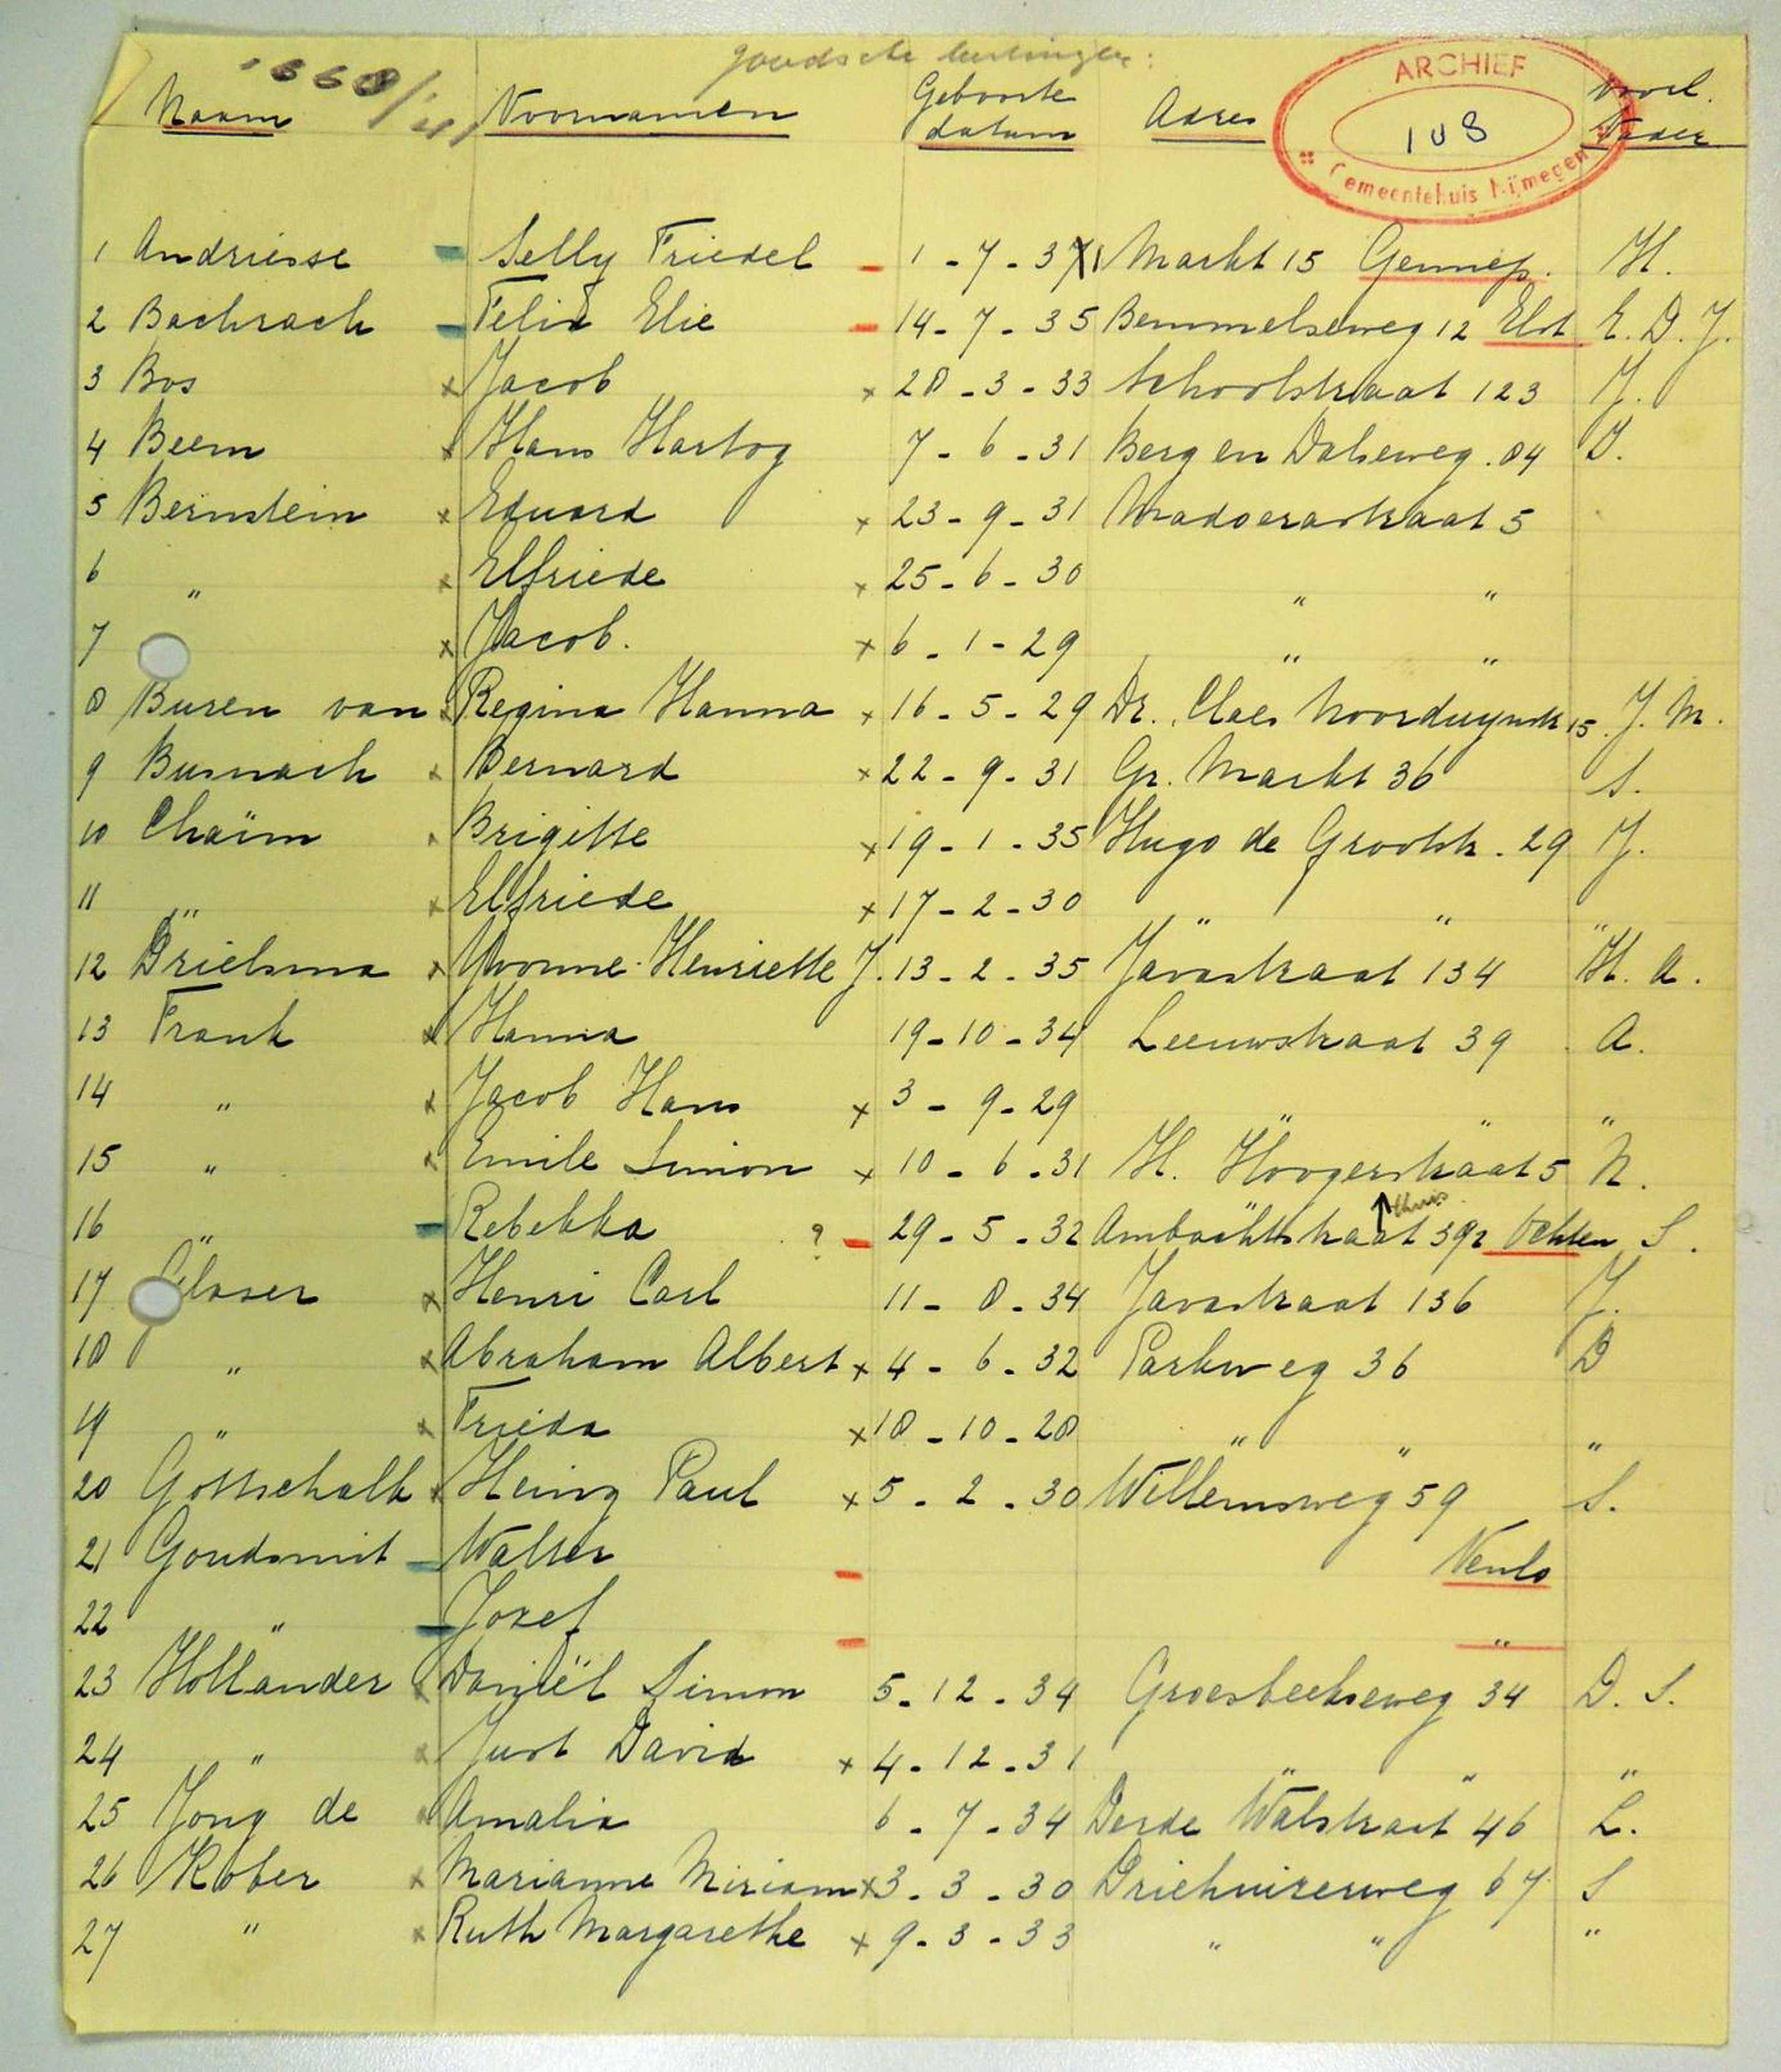 Joodsche leerlingen:
Naam Voornamen Geboorte datum Adres Voorl. Vader
ARCHIEF
108
Gemeentehuis Nijmegen
1 Andriesse Selly Friedel 1-7-31 Markt 15 Gennep. H.
2 Bachrach Felix Elie 14-7-35 Bemmelseweg 12 Elst E. D. J.
3 Bos Jacob 28-3-33 Schoolstraat 123 J.
4 Beem Hans Hartog 7-6-31 Berg en Dalseweg. 84 D.
5 Bernstein Eduard 23-9-31 Madoerastraat 5
6 " Elfriede 25-6-30 " "
7 Jacob. 6-1-29 " "
8 Buren van Regina Hanna 16-5-29 Dr. Claes Noorduynstr 15. J. M.
9 Busnach Bernard 22-9-31 Gr. Markt 36 S.
10 Chaïm Brigitte 19-1-35 Hugo de Grootstr. 29 J.
11 " Elfriede 17-2-30 " " "
12 Drielsma Yvonne Henriette J. 13-2-35 Javastraat 134 H. A.
13 Frank Hanna 19-10-34 Leeuwstraat 39 A.
14 " Jacob Hans 3-9-29 " " "
15 " Emile Simon 10-6-31 H. Hoogerstraat 5 N.
16 " Rebekka ? 29-5-32 Ambachtstraat 392 Ochten S.
17 Glaser Henri Carl 11-8-34 Javastraat 136 J.
18 " Abraham Albert 4-6-32 Parkweg 36 D
19 " Frieda 18-10-28 " " "
20 Gottschalk Heinz Paul 5-2-30 Willemsweg 59 S.
21 Goudsmit Walter Venlo
22 " Jozef "
23 Hollander Daniël Simon 5-12-34 Groesbeekseweg 34 D. S.
24 " Just David 4-12-31 " " "
25 Jong de Amalia 6-7-34 Derde Walstraat 46 L.
26 Kober Marianne Miriam 3-3-30 Driehuizerweg 67 S
27 " Ruth Margarethe 9-3-33 " " "